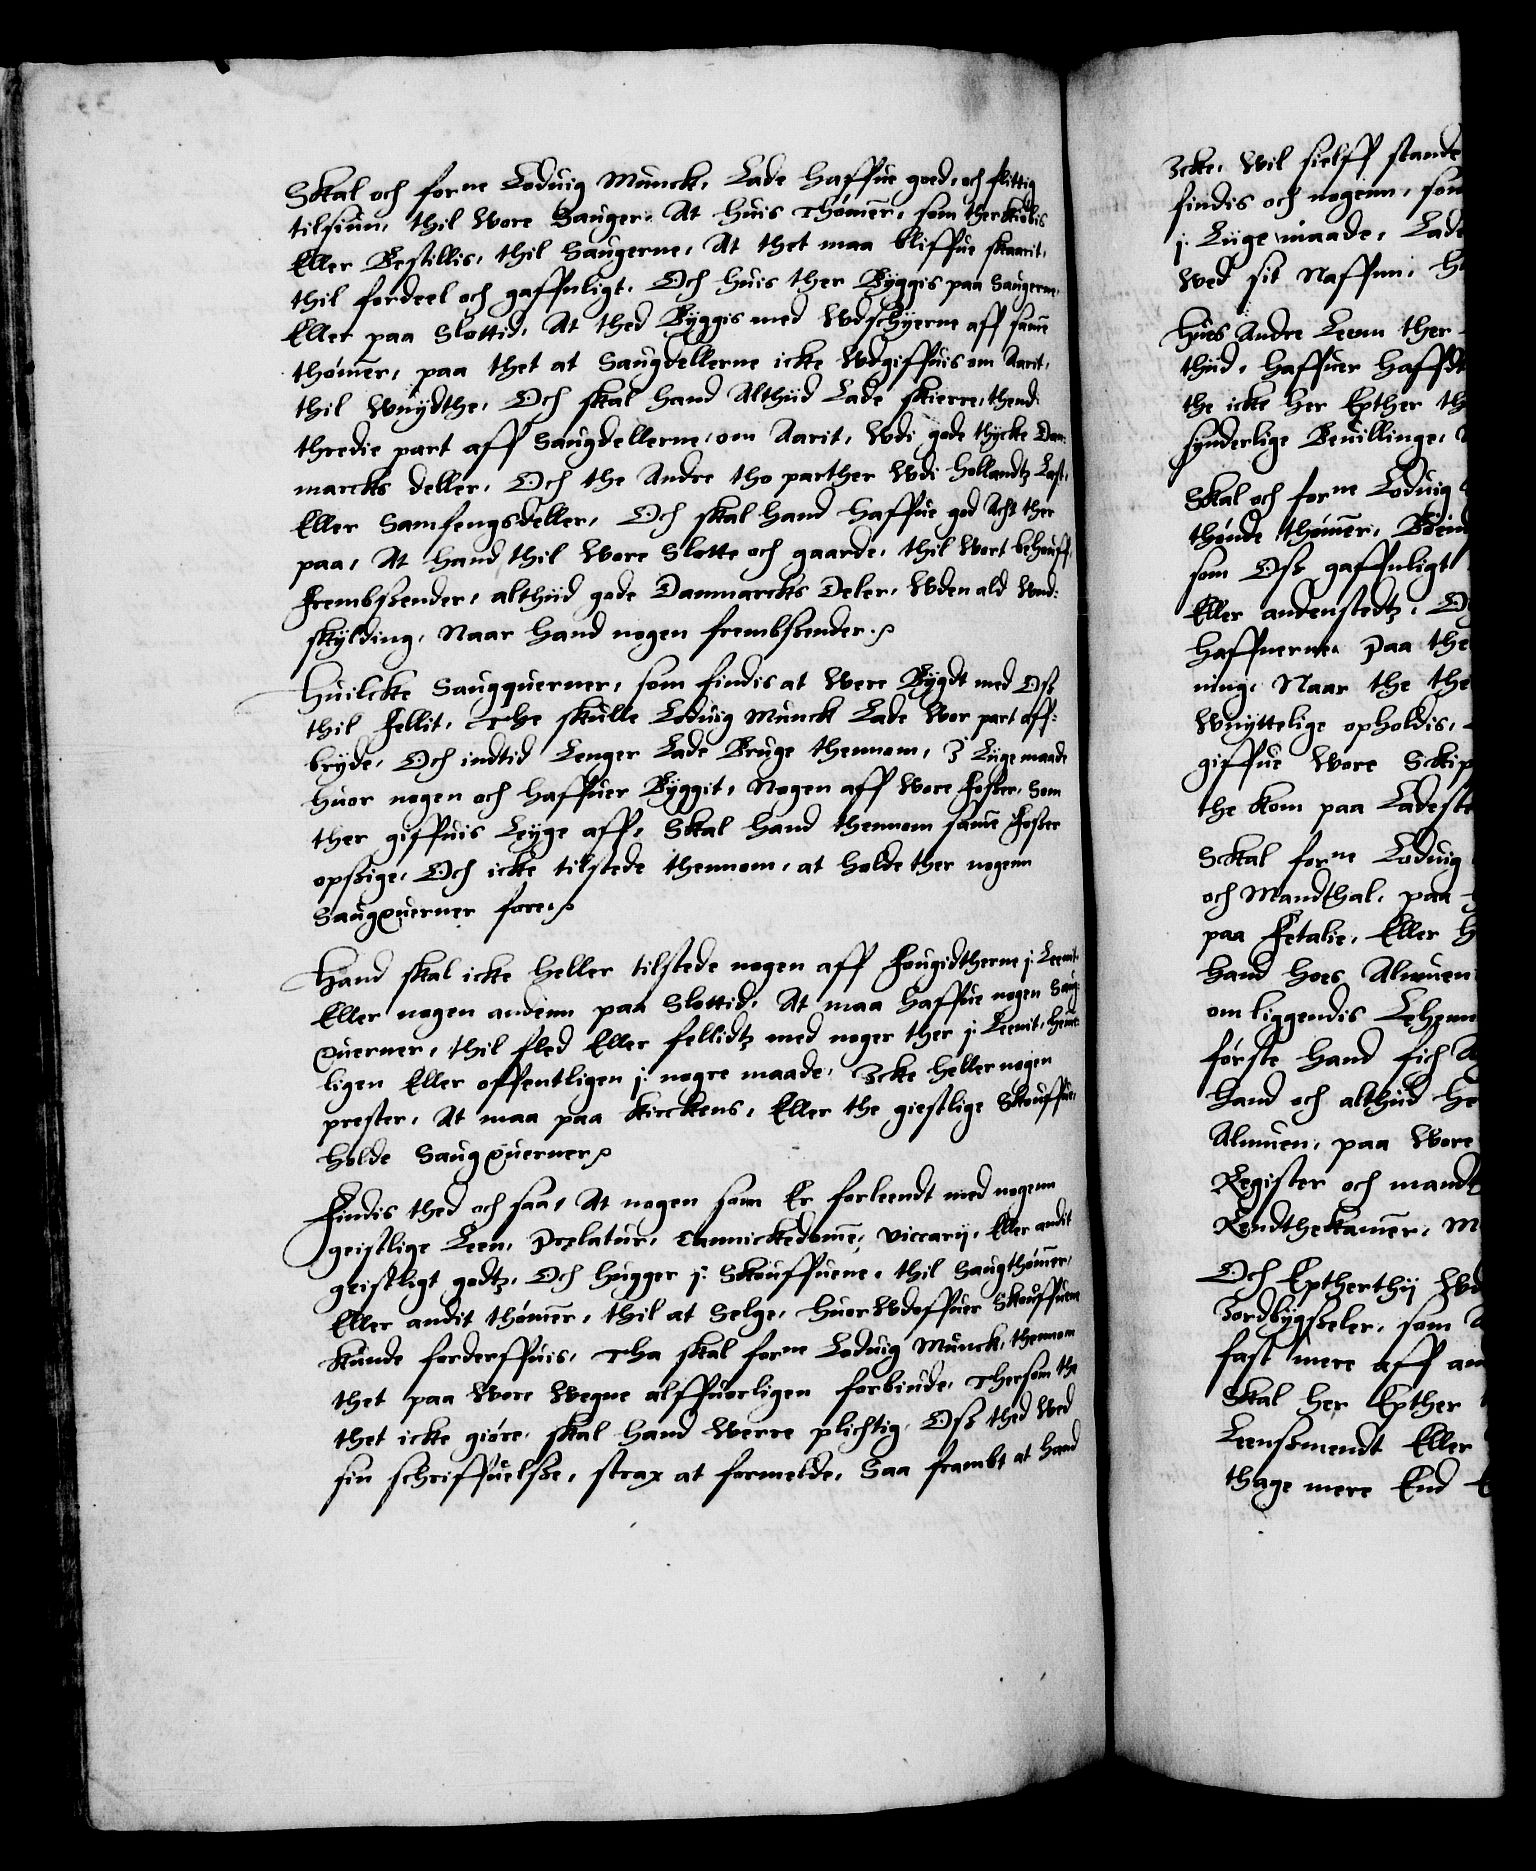 Skal och forne Loduig Munck, Lade haffue goed, och flittig
tilsiun, thil wore Sauger. At huis Thømer, som ther kiøbis
Eller Bestillis, thil Saugerne, At thet maa bliffue skaarit,
thil fordeel och gaffnligt. Och huis ther Byggis paa Saugerne,
Eller paa Slottid, At thed Byggis med Wdschyerne aff same
thømer, paa thet at Saugdellerne icke Wdgiffuis om Aarit,
thil Wnydthe, Och skal hand Althiid Lade skierre, thend
thredie part aff Saugdellerne, om Aarit, Wdi gode thycke Dan-
marcks deller, Och the Andre tho parther Wdi Hollandtz Last,
Eller Samfengsdeller, Och skal hand haffue god Acht ther
paa, At hand thil Wore Slotte och gaarde, thil Wort behouff,
frembssender, althiid gode Danmarcks Deler, Wden ald Wnd-
skylding, Naar hand nogen frembssender.
Huilcke Saugquerner, som findis at Were Bygdt med Oss
thil fellit, The skulle Loduig Munck Lade Wor part aff-
bryde, Och indtid Lenger Lade Bruge thennom, J Lige maade
huor nogen och haffuer Byggit, Nogen aff Wore Fosser, Som
ther giffuis Leyge aff, Skal hand thennom same Fosser
opssige, Och icke tilstede thennom, at holde ther nogenn
Saugquerner fore.
Hand skal icke heller tilstede nogen aff Fougidtherne j Leenit,
Eller nogen andenn paa Slottid, At maa haffue nogen Saug-
querner, thil fled Eller fellidtz med noger ther j Leenit, heme-
ligen Eller offentligen j nogre maade, Jcke heller nogen
prester, At maa paa Kirckens, Eller the giestlige Skouffue,
holde Saugquerner
Findis thed och saa, At nogen som Er forleendt med nogenn
geistlige Leen, Prelatur, Cannickedome, Viccarij, Eller andit
geistligt godtz, Och hugger j Skouffuene, thil Saugthømer,
Eller andit thømer, thil at Selge, huor Wdoffuer Skouffuene
kunde forderffuis, Tha skal forne Loduig Munck, thennom
thet paa Wore Wegne alffuorligen forbiude, Thersom the
thet icke giøre, skal hand Werre plichtig, Oss thed Wed
sin schriffuelsse, strax at formelde, Saa frambt at hand
Jcke, Wil sielff stande
findis och nogenn, som
j Liige maade, Lade
Wed sit Naffun,
Hues Andre Leenn ther
thiid, haffuer haffdt
the icke her Epther
synderlige Beuillinge,
Skal och forne Loduig
thønde thømer,
som Oss gaffnligt
Eller andenstedtz,
haffnerne, Paa the
ning, Naar the
Wnyttelige opholdis,
giffue Wore
the kom paa
Sckal forne Loduig
och Mandthal, paa
paa Fetalie, Eller
hand hoes Almuen
omliggendis Lehenn
første hand fich
hand och althiid
Almuen, paa Wore
Register och
Rendthekamer,
Och Eptherthij
Jordbygsseler, som
fast mere aff
Skal her Epther
Leenssmendt Eller
thage mere End